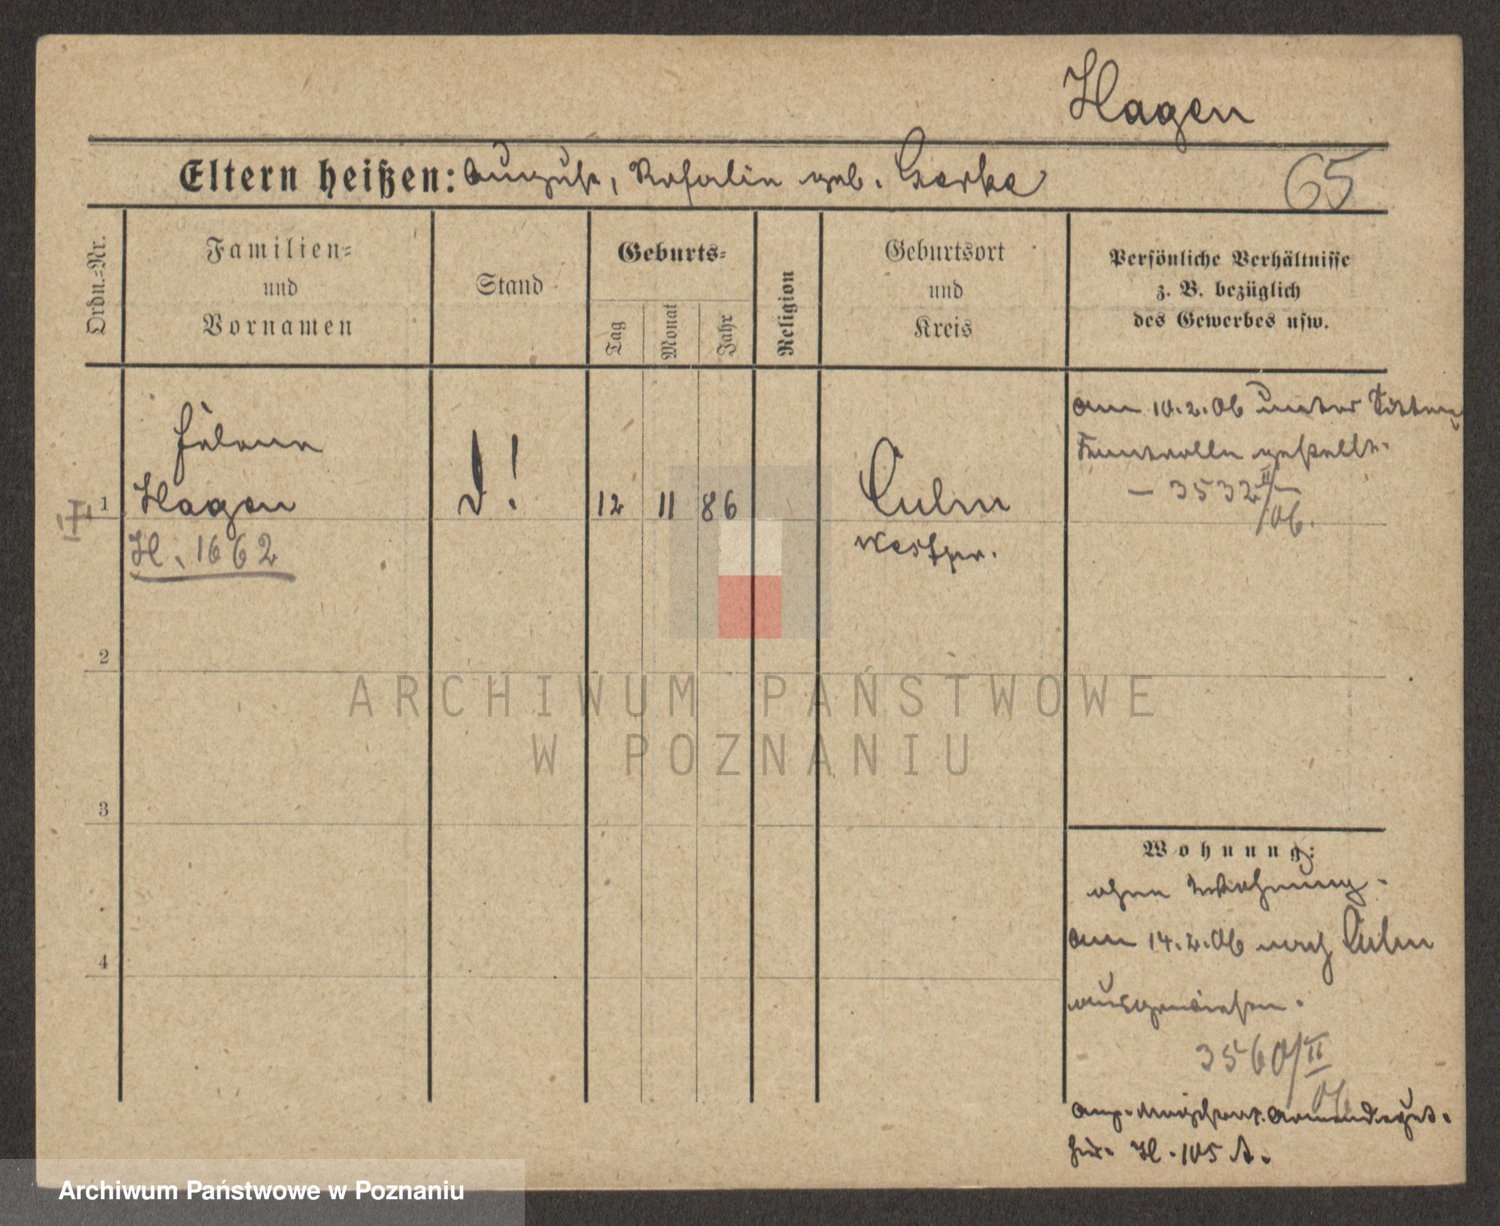 Hagen
Eltern heißen: August, Rosalie geb. Gerke
65
Ordn.=Nr.
Familien=
und
Vornamen
Stand
Geburts=
Tag
Monat
Jahr
Religion
Geburtsort
und
Kreis
Persönliche Verhältnisse
z. B. bezüglich
des Gewerbes usw.
am 10.2.06 unter Sitten
Kontrolle gestellt.
- 3532 II/06. -
Helene
1 Hagen
H. 1662
12 11 86
Culm
Westpr.
2
3
4
Wohnung:
ohne Wohnung.
am 14.2.06 nach Culm
ausgewiesen.
3560/II
H. 105
ARCHIWUM PAŃSTWOWE
W POZNANIU
Archiwum Państwowe w Poznaniu